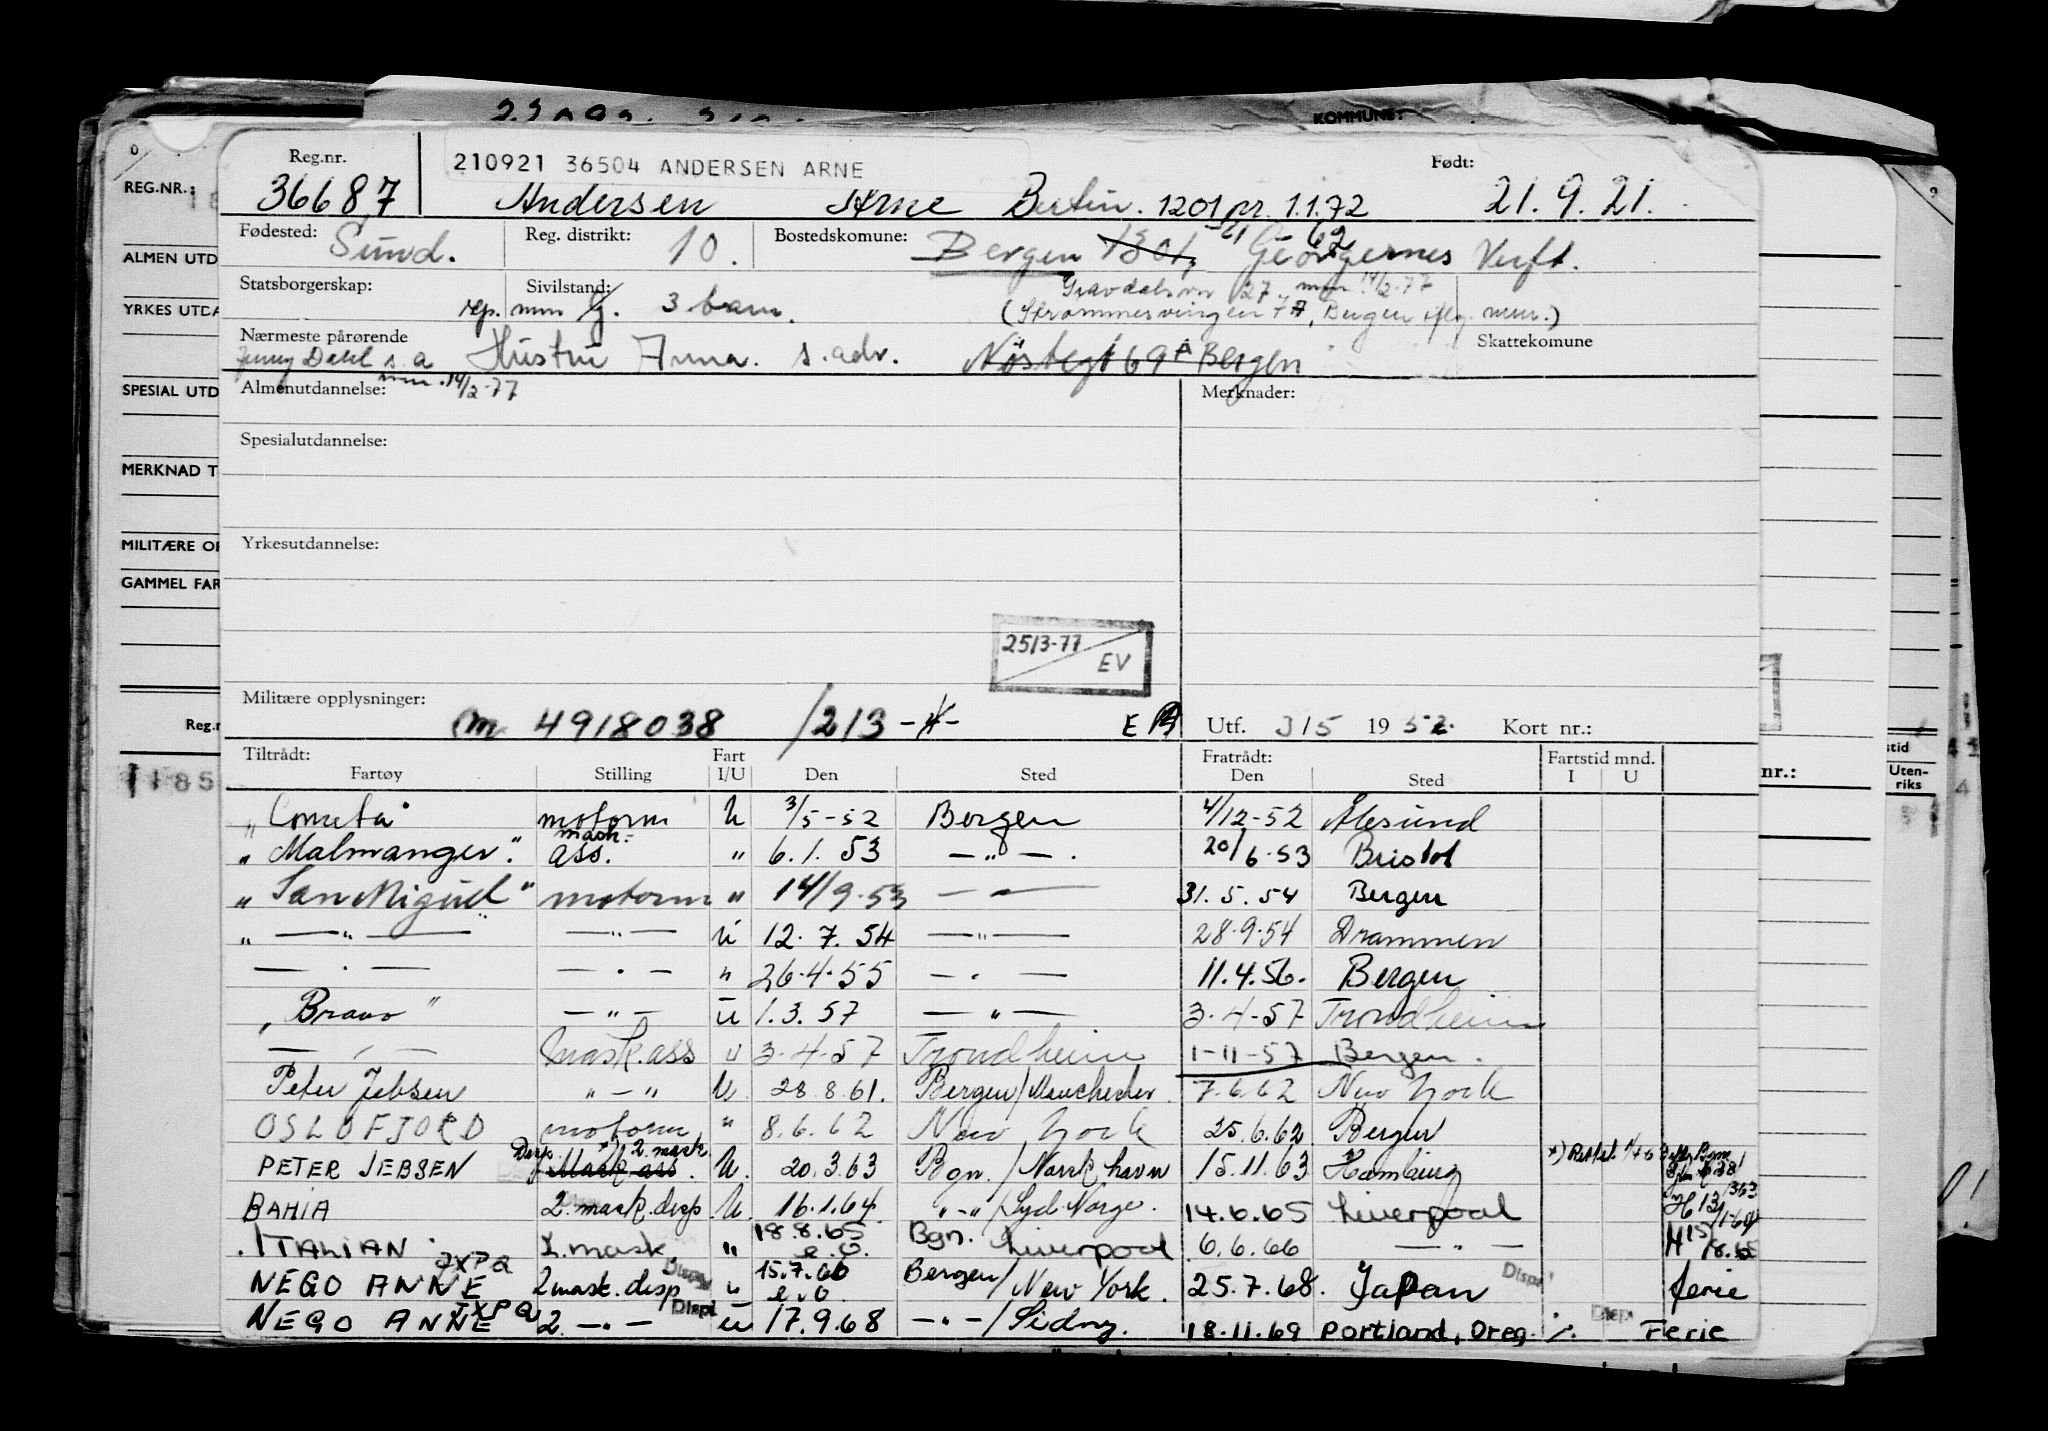 KOMMUNE:
Reg.nr. 210921 36504 ANDERSEN ARNE Født:
REG.NR.:
36687 Andersen Arne Bertin. 1201 pr. 1.1.72 21.9.21.
Fødested: Sund. Reg. distrikt: 10. Bostedskomune: Bergen 1301, Georgernes Verft.
ALMEN UTD
Statsborgerskap: Sivilstand: rep. mm G. 3 barn. Gravdalsvn 27 mm 14/2-77
YRKES UTDA
(Strømmesvingen 7A, Bergen iflg. mm.)
Nærmeste pårørende Skattekomune
Jenny Dahl s.a Hustru Anna. s. adr. Nøstegt 69 A Bergen
mm. 14/2-77
SPESIAL UTD Almenutdannelse: Merknader:
Spesialutdannelse:
MERKNAD T
MILITÆRE OP Yrkesutdannelse:
GAMMEL FAR
25/3-77
EV
Militære opplysninger:
m 4918038 /213-4- E Utf. 3/5 1952. Kort nr.:
Reg.n
Tiltrådt: Fart Fratrådt: Fartstid mnd.
Fartøy Stilling I/U Den Sted Den Sted I U nr.: Uten-
riks
"Cometa" motorm U 3/5-52 Bergen 4/12-52 Ålesund
"Malmanger". mask. ass. " 6.1.53 —"—. 20/6-53 Bristol
"San Miguel" motorm " 14/9.53 — — 31.5.54 Bergen
" —"— —"— U 12.7.54 —"— 28.9.54 Drammen
— " — — " — " 26.4.55 — " — 11.4.56. Bergen
"Bravo" — " — U 1.3.57 — " — 3-4-57 Trondheim
— " — Mask.ass U 3-4-57 Trondheim 1-11-57 Bergen.
Peter Jebsen " — " U. 28.8.61. Bergen/Manchester. 7.6.62 New York
OSLOFJORD motorm " 8.6.62 New York 25.6.62 Bergen
PETER JEBSEN Disp. *) 2. mask Mask ass. U. 20.3.63 Bgn./Narsk havn 15.11.63 Hamburg
BAHIA 2. mask. disp. U. 16.1.64 "-"/Syd. Norge. 14.6.65 Liverpool
ITALIAN 2. mask. " 18.8.65 e.o. Bgn. Liverpool 6.6.66 — " —
NEGO ANNE JXPQ 2 mask. disp Disp! " 15.7.66 e.o. Bergen/New York. 25.7.68. Japan Disp! ferie
NEGO ANNE JXPQ 2. —"— Disp! U 17.9.68 —"—/Sidny. 18.11.69 Portland, Oreg. Disp! Ferie